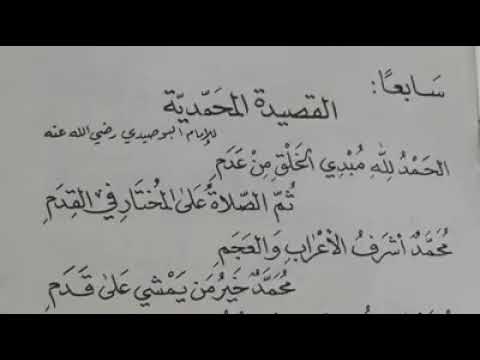 سَابِعًا:
القصيدة المحَمّديّة
للإمام البوصيدي رضي الله عنه
الحَمْدُ لِلّٰهِ مُبْدِي الخَلْقِ مِنْ عَدَمِ
ثُمّ الصّلَاةُ عَلىٰ المُخْتَارِ فِي القِدَمِ
مُحَمَّدٌ أشْرَفُ الأَعْرَابِ وَالعَجَمِ
مُحَمَّدٌ خَيْرُ مَن يَمْشِي عَلىٰ قَدَمِ